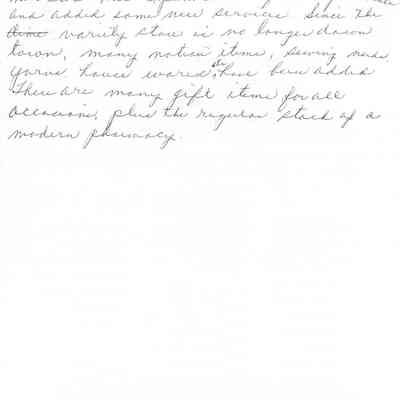 and added some new services. Since the
dime variety store is no longer down
town, many notion items, sewing needs,
yarns house wares etc. have been added
There are many gift items for all
occasions, plus the regular stock of a
modern pharmacy.